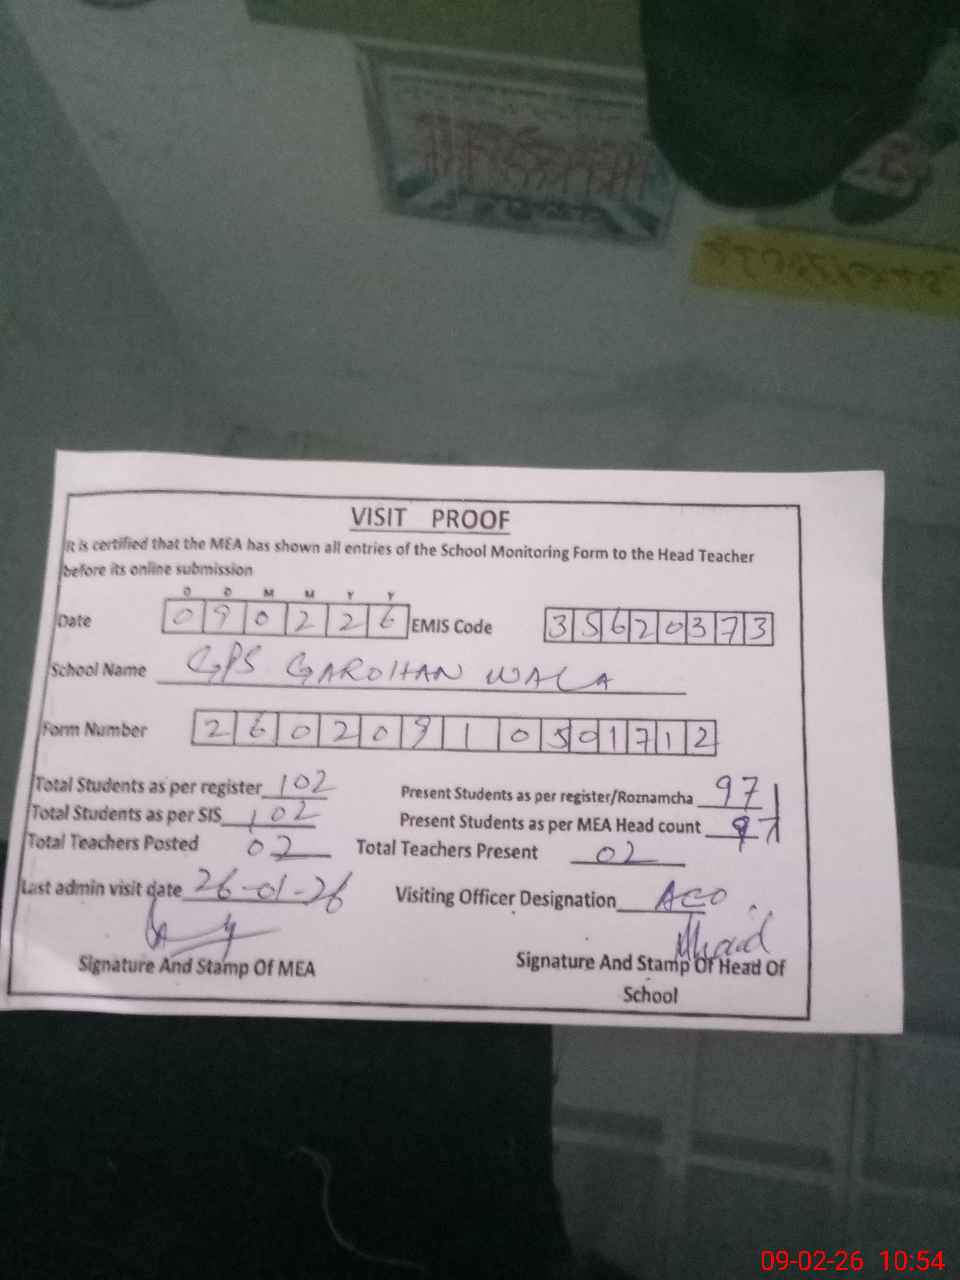 VISIT PROOF
It is certified that the MEA has shown all entries of the School Monitoring Form to the Head Teacher
before its online submission
D D M M Y Y
Date 090226 EMIS Code 35620373
School Name GPS GAROHAN WALA
Form Number 26020910501712
Total Students as per register 102 Present Students as per register/Roznamcha 97
Total Students as per SIS 102 Present Students as per MEA Head count 97
Total Teachers Posted 02 Total Teachers Present 02
Last admin visit date 26-01-26 Visiting Officer Designation AEO
Signature And Stamp Of MEA Signature And Stamp Of Head Of
School
09-02-26 10:54